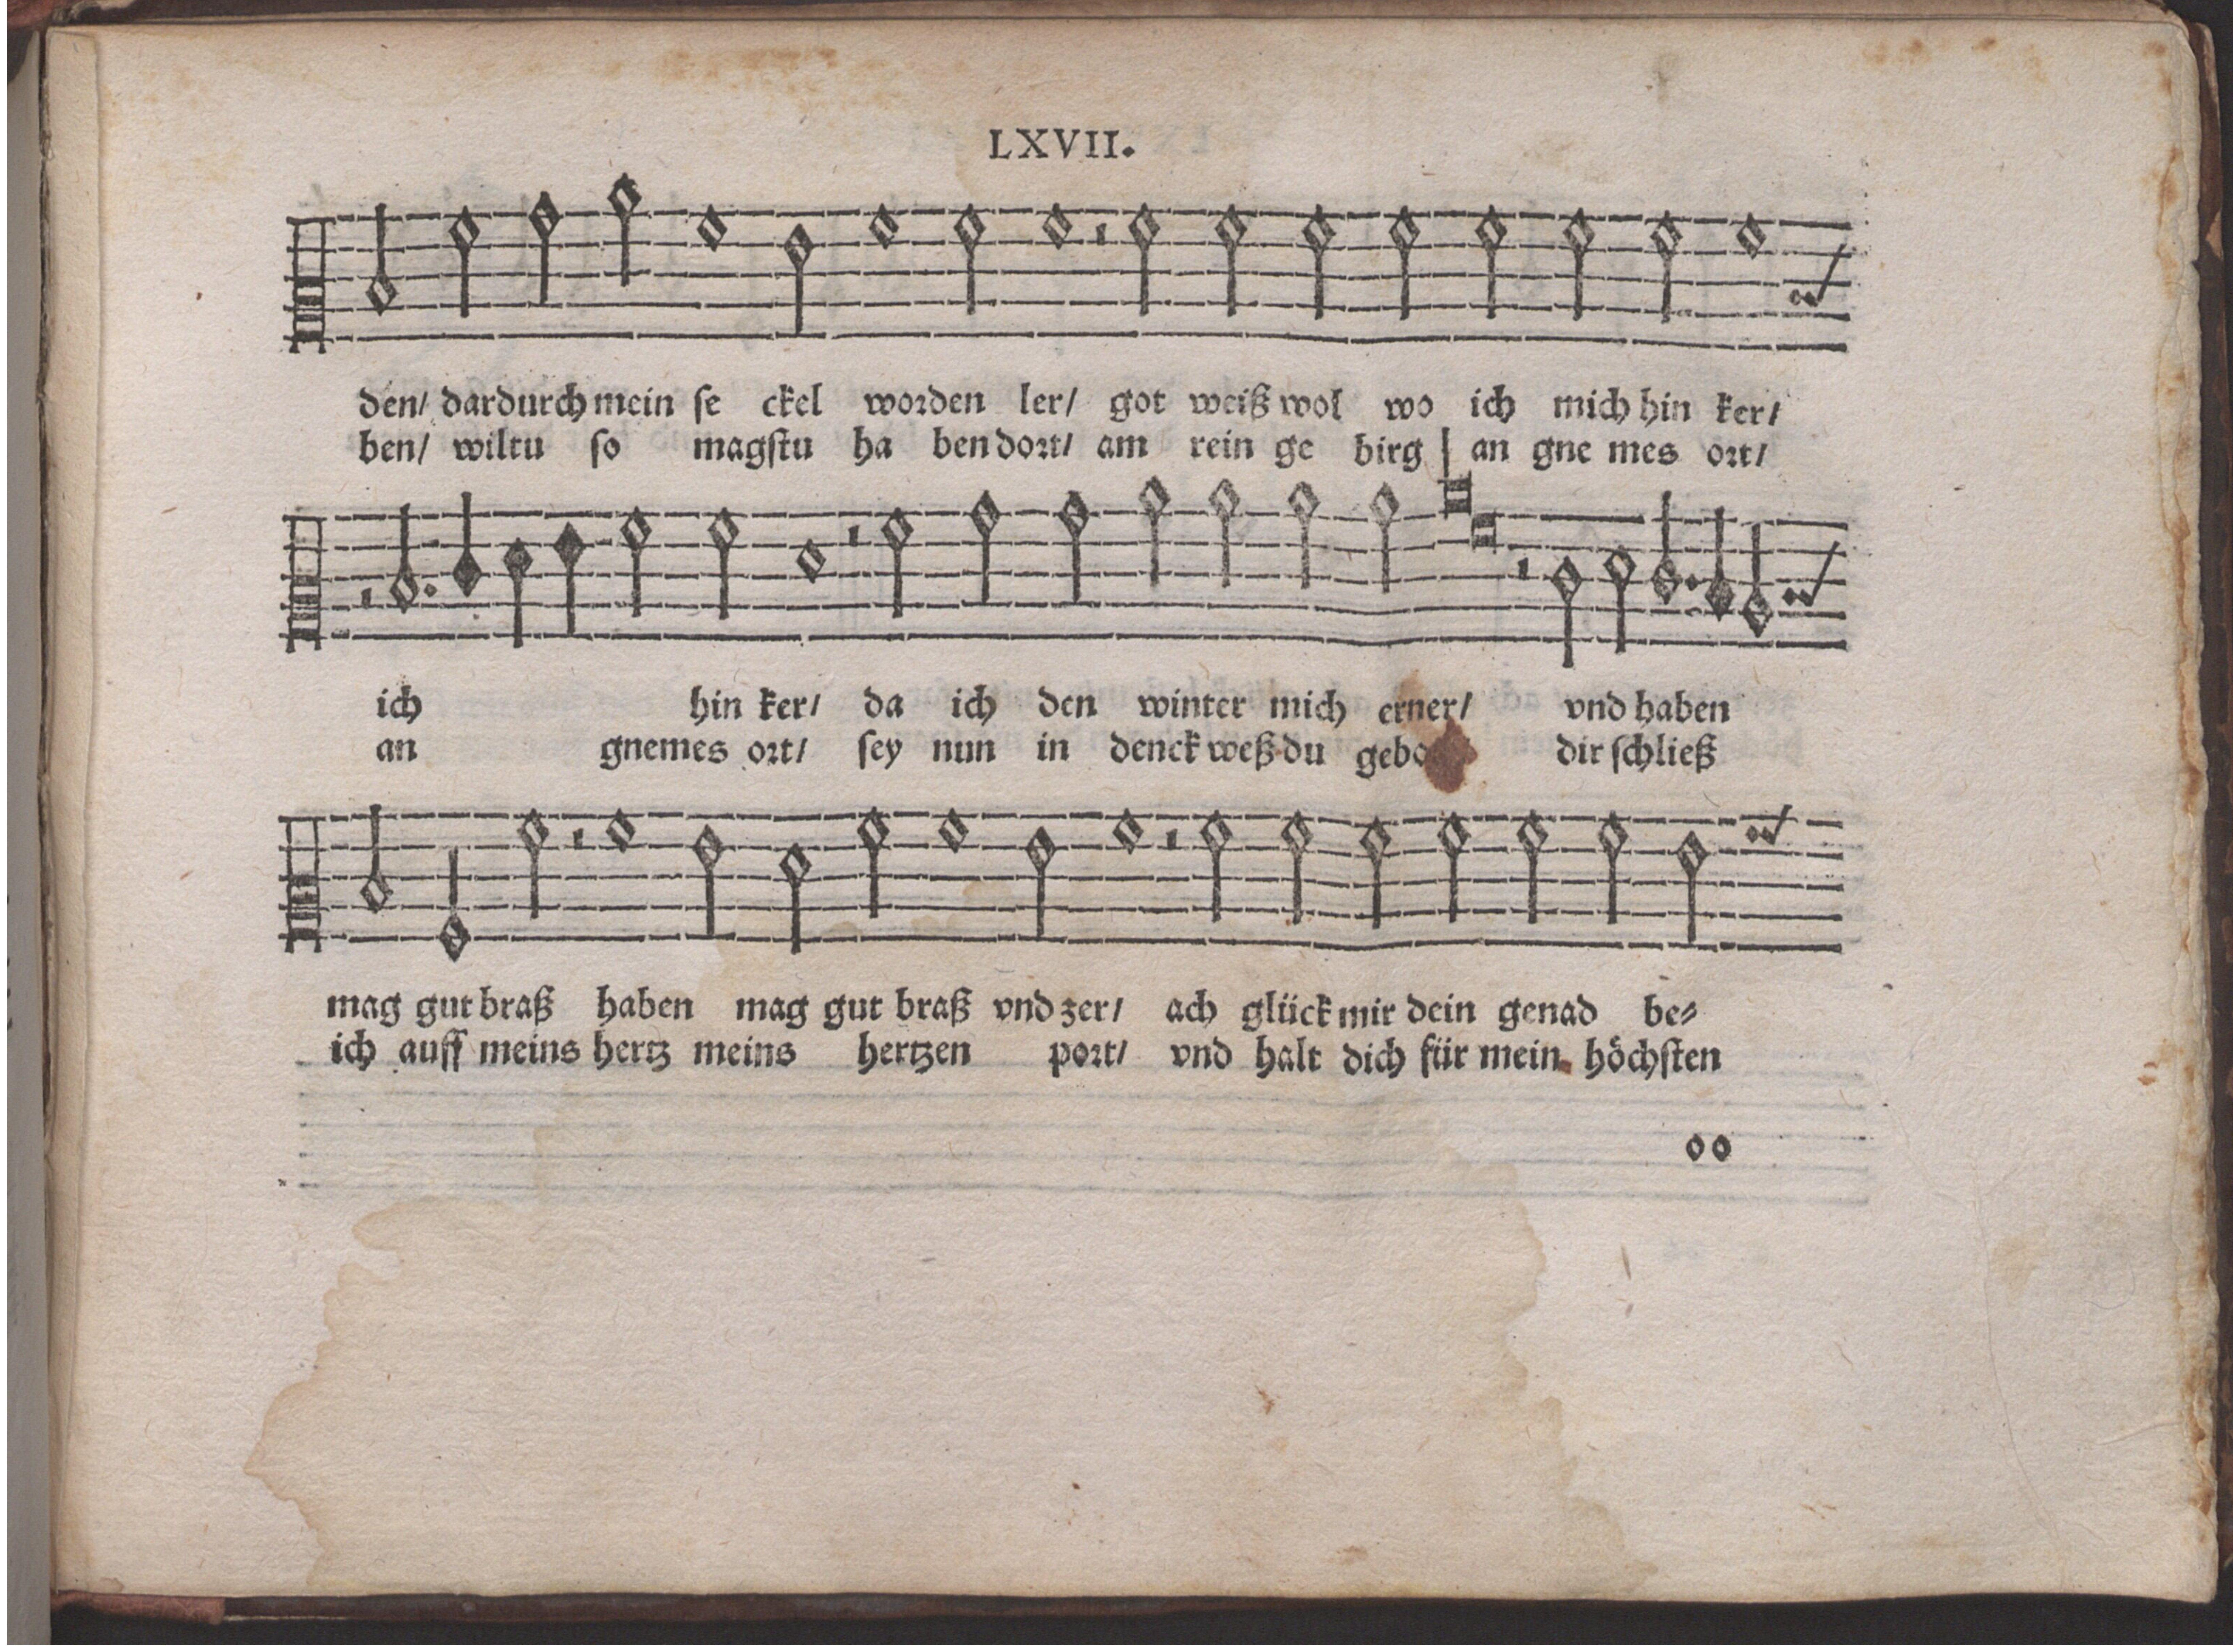 LXVII.
den/ dardurch mein se ckel worden ler/ got weiß wol wo ich mich hin ker/
ben/ wiltu so magstu ha ben dort/ am rein ge birg | an gne mes ort/
ich hin ker/ da ich den winter mich erner/ vnd haben
an gnemes ort/ sey nun in denck weß du dir schließ
mag gut braß haben mag gut braß vnd zer/ ach glück mir dein genad be⸗
ich auff meins hertz meins hertzen port/ vnd halt dich für mein höchsten
oo